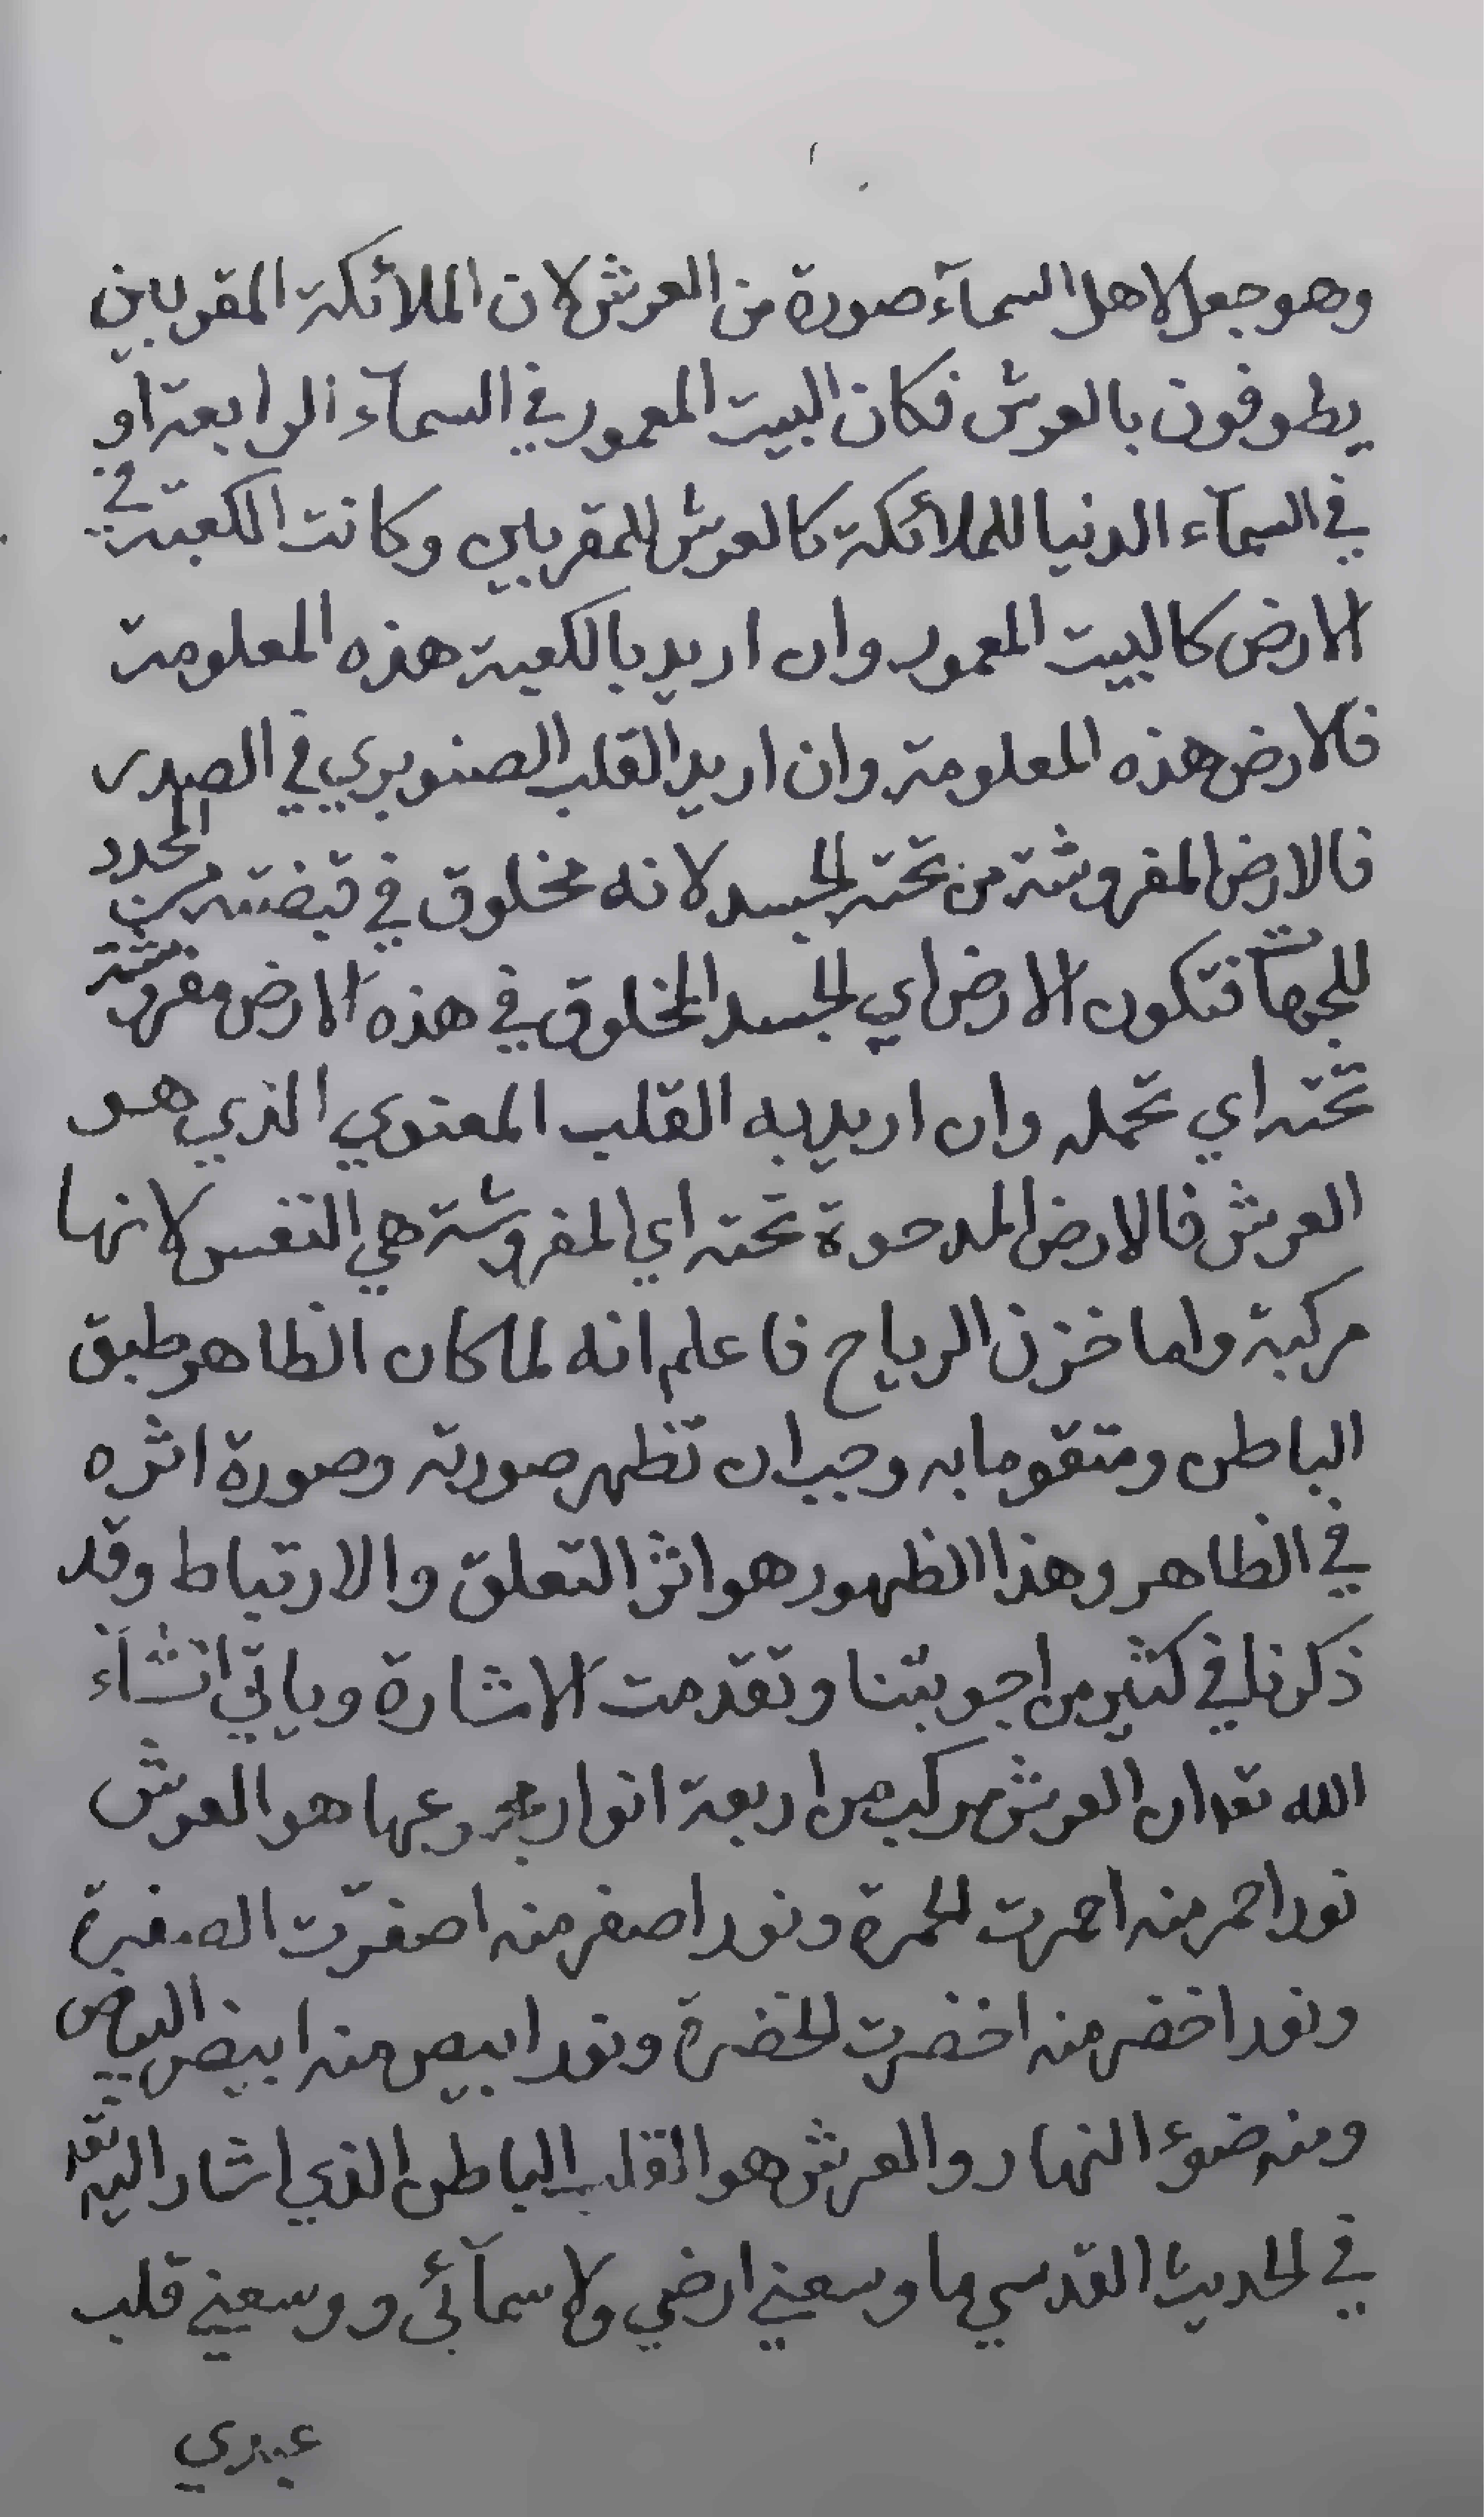 وهو جعل لاهل السمآء صورة من العرش لان الملائكة المقربين
يطوفون بالعرش فكان البيت المعمور في السمآء الرابعة او
في السمآء الدنيا للملائكة كالعرش للمقربين وكانت الكعبة في
الارض كالبيت المعمور وان اريد بالكعبة هذه المعلومة
فالارض هذه المعلومة وان اريد القلب الصنوبري في الصدر
فالارض المفروشة من تحته الجسد لانه مخلوق في قبضته من المحدد
للجهات فتكون الارض اي الجسد المخلوق في هذه الارض مفروشة
تحته اي تحمله وان اريد به القلب المعنوي الذي هو
العرش فالارض المدحوة تحته اي المفروشة هي النفس لانها
مركبة واما خزن الرياح فاعلم انه لما كان الظاهر طبق
الباطن ومتقوما به وجب ان تظهر صورته وصورة اثره
في الظاهر وهذا الظهور هو اثر التعلق والارتباط وقد
ذكرنا في كثير من اجوبتنا وتقدمت الاشارة وياتي انشآء
الله تعا ان العرش مركب من اربعة انوار مجموعها هو العرش
نور احمر منه احمرت الحمرة ونور اصفر منه اصفرّت الصفرة
ونور اخضر منه اخضرت الخضرة ونور ابيض منه ابيض البياض
ومنه ضوء النهار والعرش هو القلب الباطن الذي اشار اليه تعا
في الحديث القدسي ما وسعني ارضي ولا سمآئي ووسعني قلب
عبدي